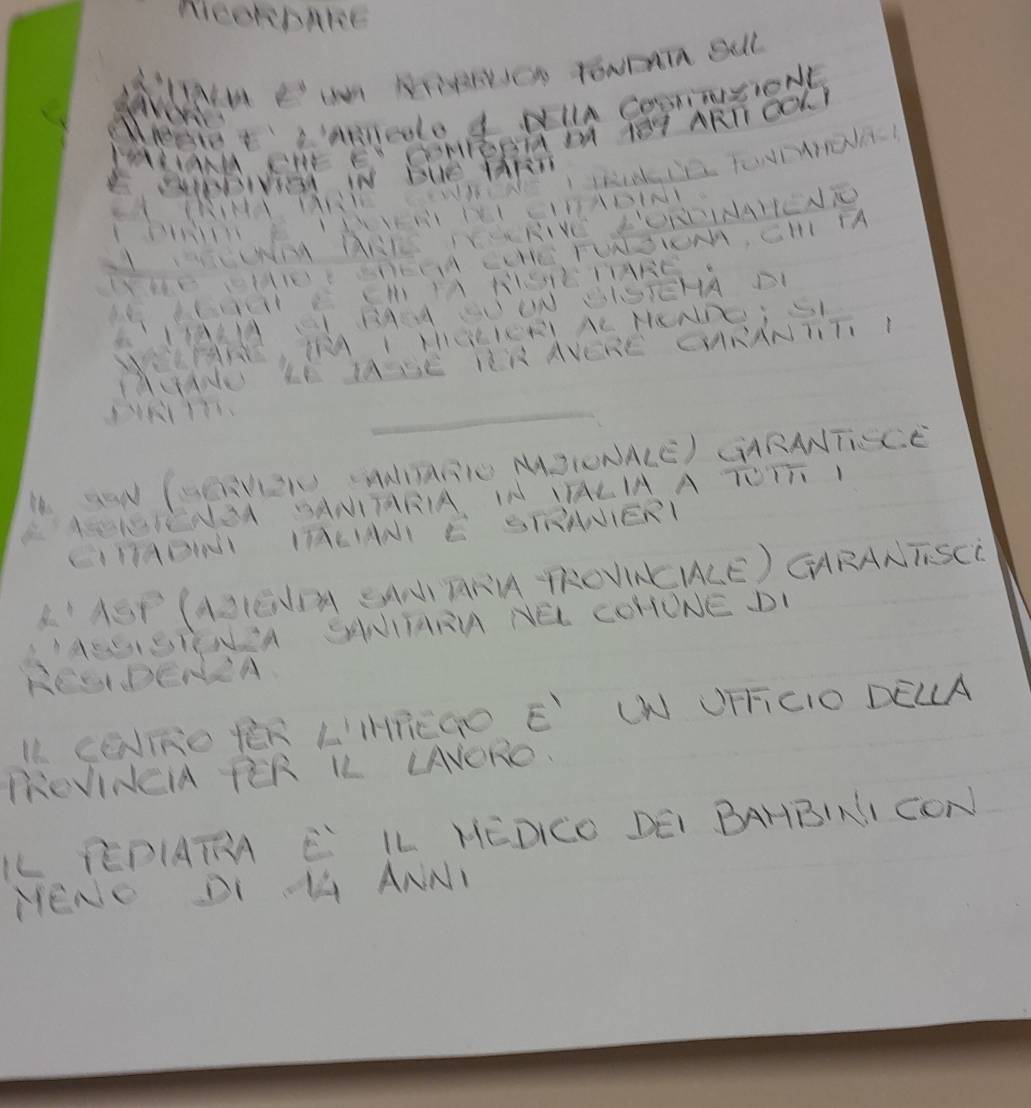 RICORDARE
L'ITALIA E' UNA REPUBBLICA FONDATA SUL
LAVORO
QUESTO E' L'ARTICOLO 1 DELLA COSTITUZIONE
ITALIANA CHE E' COMPOSTA DA 139 ARTICOLI
E SUDDIVISA IN DUE PARTI
LA PRIMA PARTE CONTIENE I PRINCIPI FONDAMENTALI
I DIRITTI E I DOVERI DEI CITTADINI.
LA SECONDA PARTE DESCRIVE L'ORDINAMENTO
DELLO STATO: SPIEGA COME FUNZIONA, CHI FA
LE LEGGI E CHI FA RISPETTARE.
L'ITALIA SI BASA SU UN SISTEMA DI
WELFARE TRA I MIGLIORI AL MONDO; SI
PAGANO LE TASSE PER AVERE GARANTITI I
DIRITTI.
IL SSN (SERVIZIO SANITARIO NAZIONALE) GARANTISCE
L'ASSISTENZA SANITARIA IN ITALIA A TUTTI I
CITTADINI ITALIANI E STRANIERI
L'ASP (AZIENDA SANITARIA PROVINCIALE) GARANTISCE
L'ASSISTENZA SANITARIA NEL COMUNE DI
RESIDENZA.
IL CENTRO PER L'IMPIEGO E' UN UFFICIO DELLA
PROVINCIA PER IL LAVORO.
IL PEDIATRA E' IL MEDICO DEI BAMBINI CON
MENO DI 14 ANNI